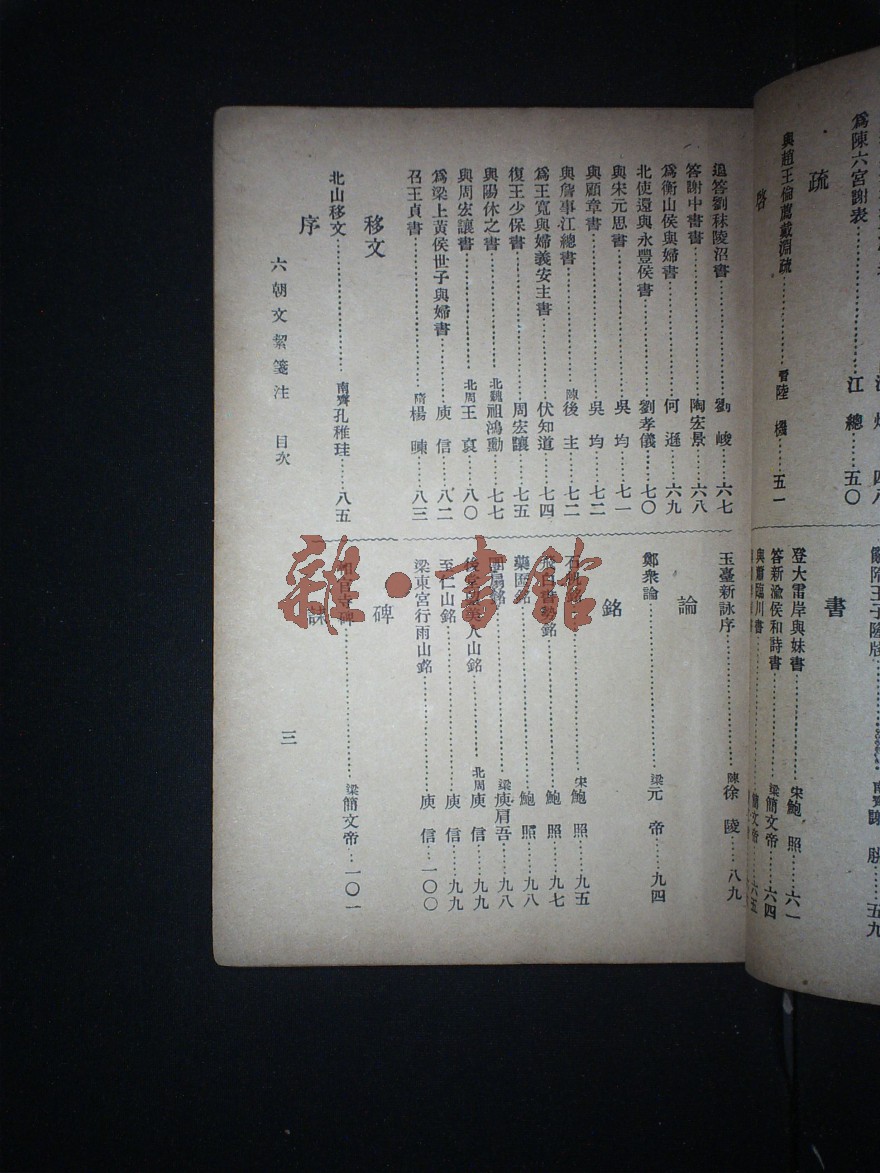 爲陳六宮謝表……江總……五〇
疏
與趙王倫薦戴淵疏……晉陸機……五一
啓
書
登大雷岸與妹書……宋鮑照……六一
答新渝侯和詩書……梁簡文帝……六四
與蕭臨川書……簡文帝……六五
追答劉秣陵沼書……劉峻……六七
答謝中書書……陶宏景……六八
爲衡山侯與婦書……何遜……六九
北使還與永豐侯書……劉孝儀……七〇
與宋元思書……吳均……七一
與顧章書……吳均……七二
與詹事江總書……陳後主……七二
爲王寬與婦義安主書……伏知道……七四
復王少保書……周宏讓……七五
與陽休之書……北魏祖鴻勳……七七
與周宏讓書……北周王襃……八〇
爲梁上黃侯世子與婦書……庾信……八二
召王貞書……隋楊暕……八三
移文
北山移文……南齊孔稚珪……八五
序
玉臺新詠序……陳徐陵……八九
論
鄭衆論……梁元帝……九四
銘
石帆銘……宋鮑照……九五
飛白書勢銘……鮑照……九七
藥匳銘……鮑照……九八
團扇銘……梁庾肩吾……九八
後堂望美人山銘……北周庾信……九九
至仁山銘……庾信……九九
梁東宮行雨山銘……庾信……一〇〇
碑
相官寺碑……梁簡文帝……一〇一
誄
六朝文絜箋注 目次
三
雜·書館